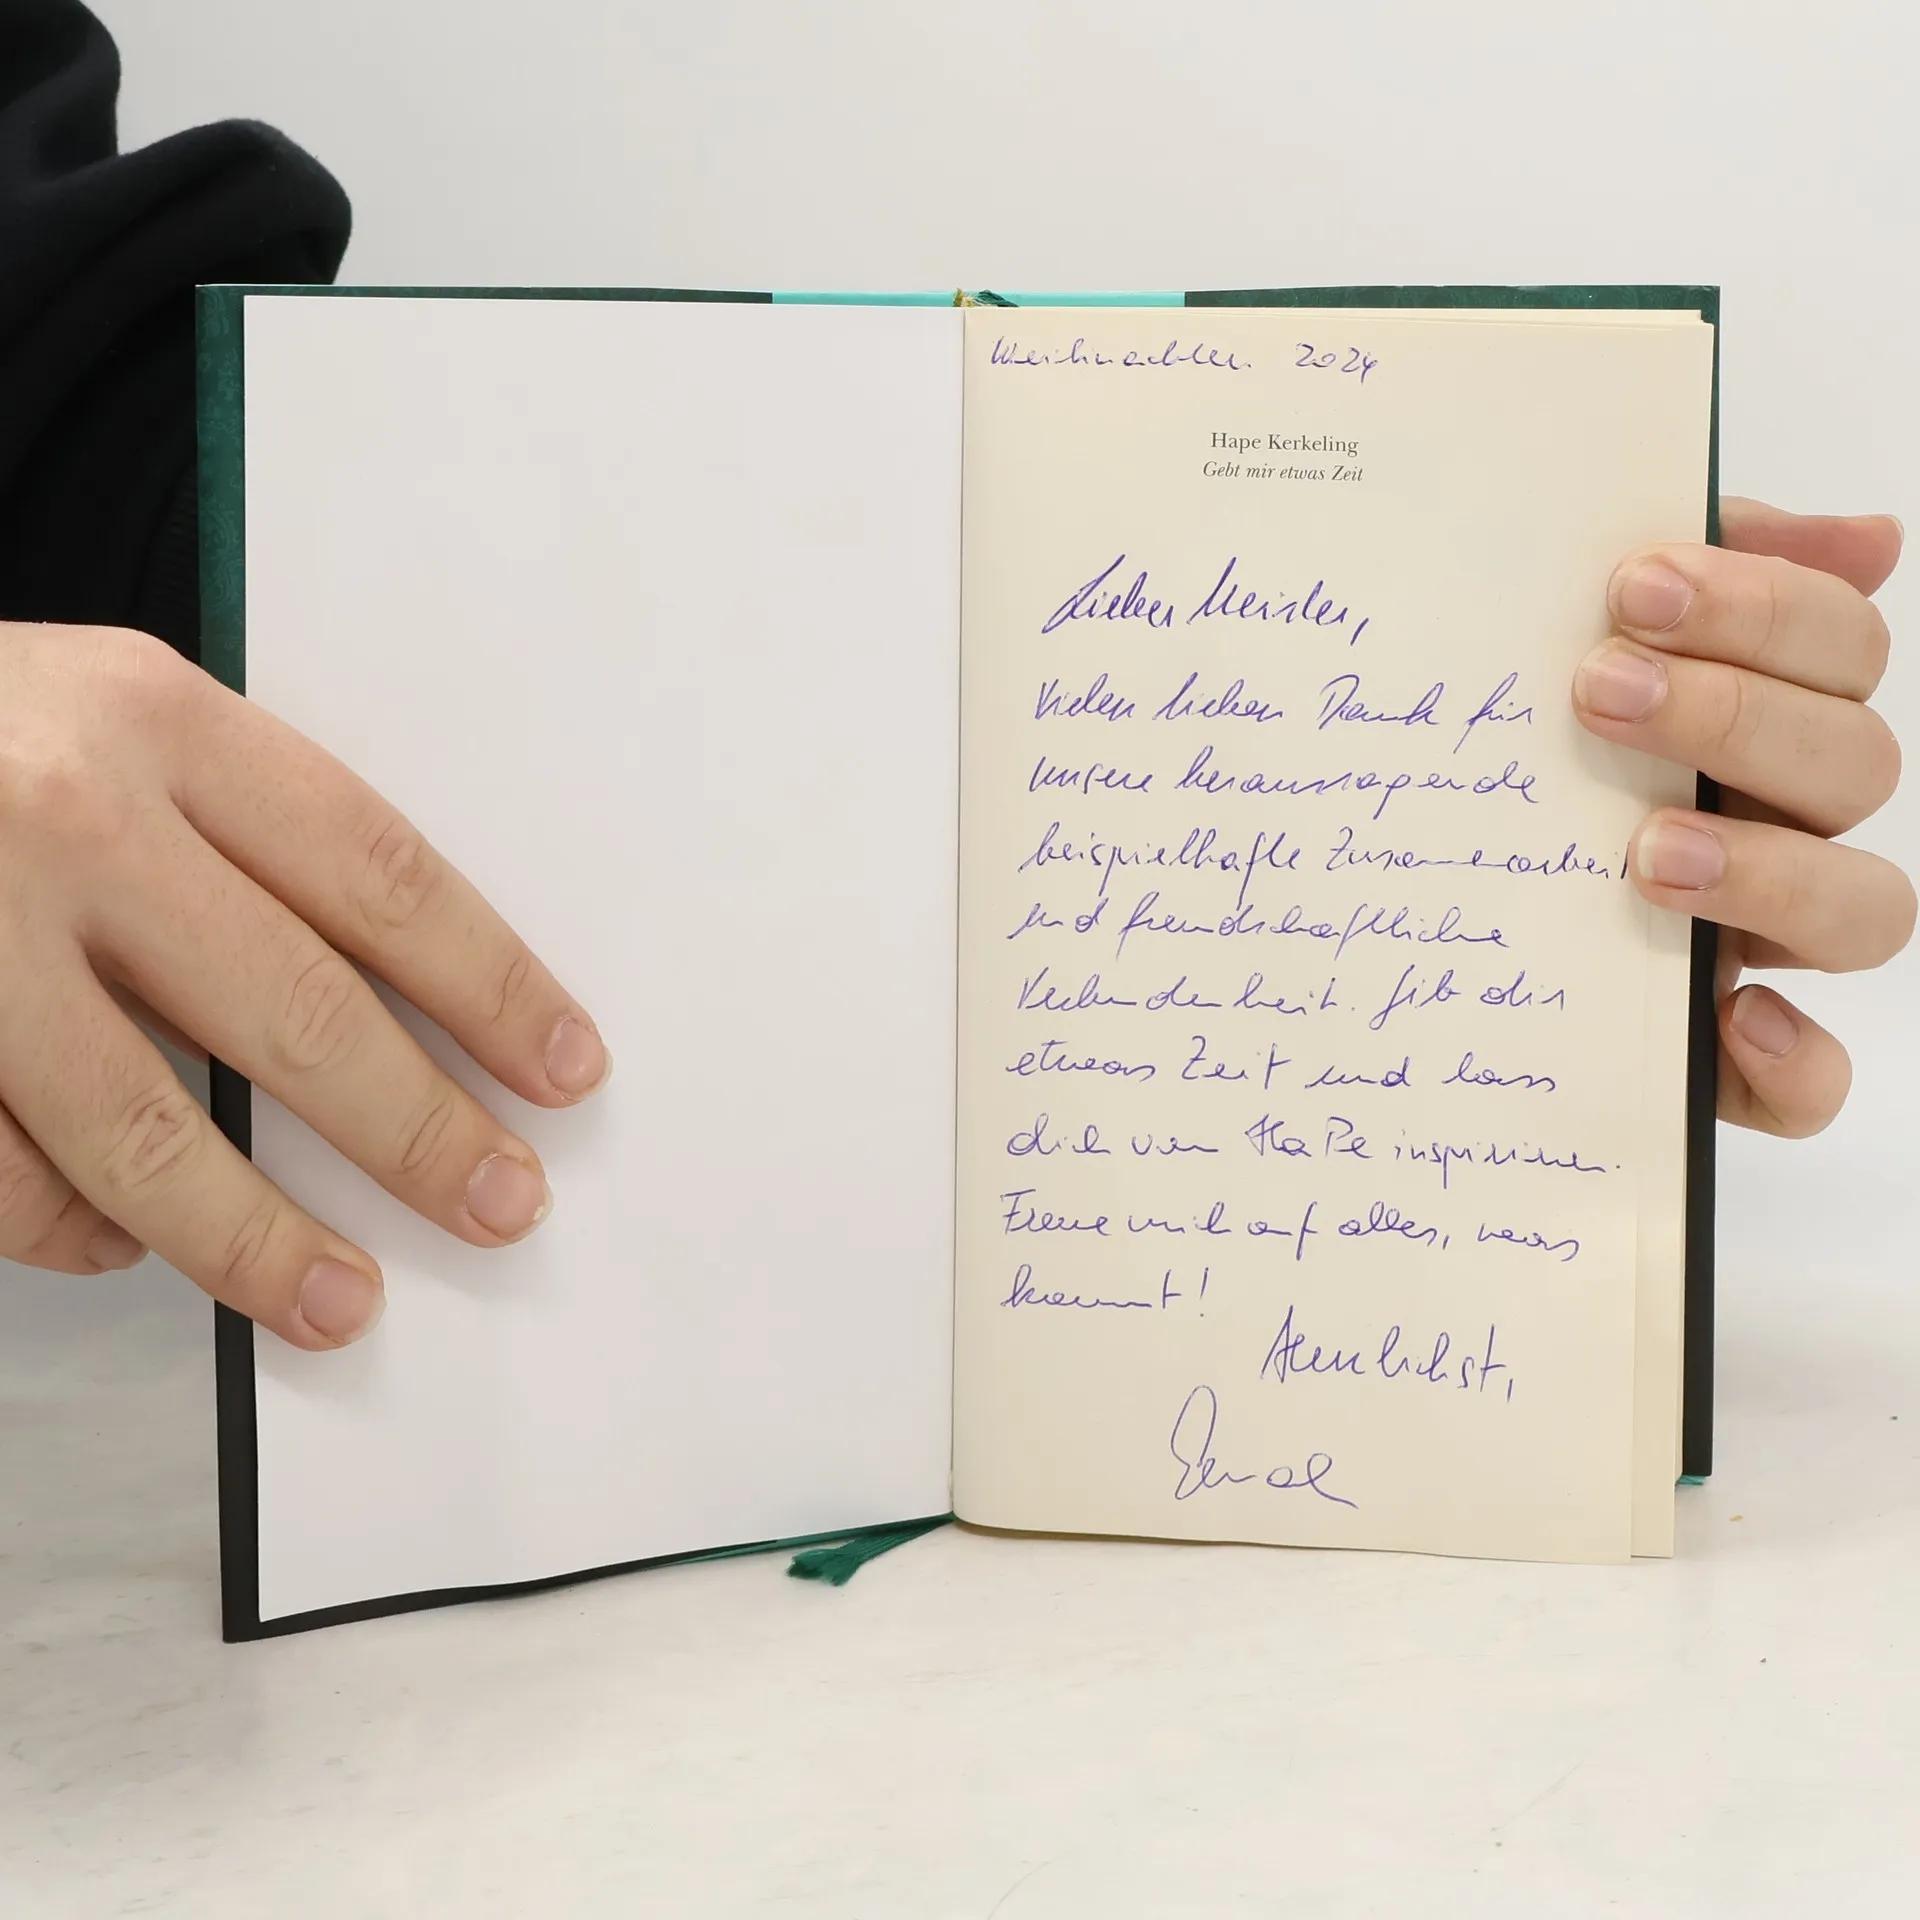 Weihnachten 2024
Hape Kerkeling
Gebt mir etwas Zeit
Lieber Meister,
Vielen lieben Dank für
unsere herausragende
beispielhafte Zusammenarbeit
und freundschaftliche
Verbundenheit. Gib dir
etwas Zeit und lass
dich von HaPe inspirieren.
Freue mich auf alles, was
kommt!
Herzlichst,